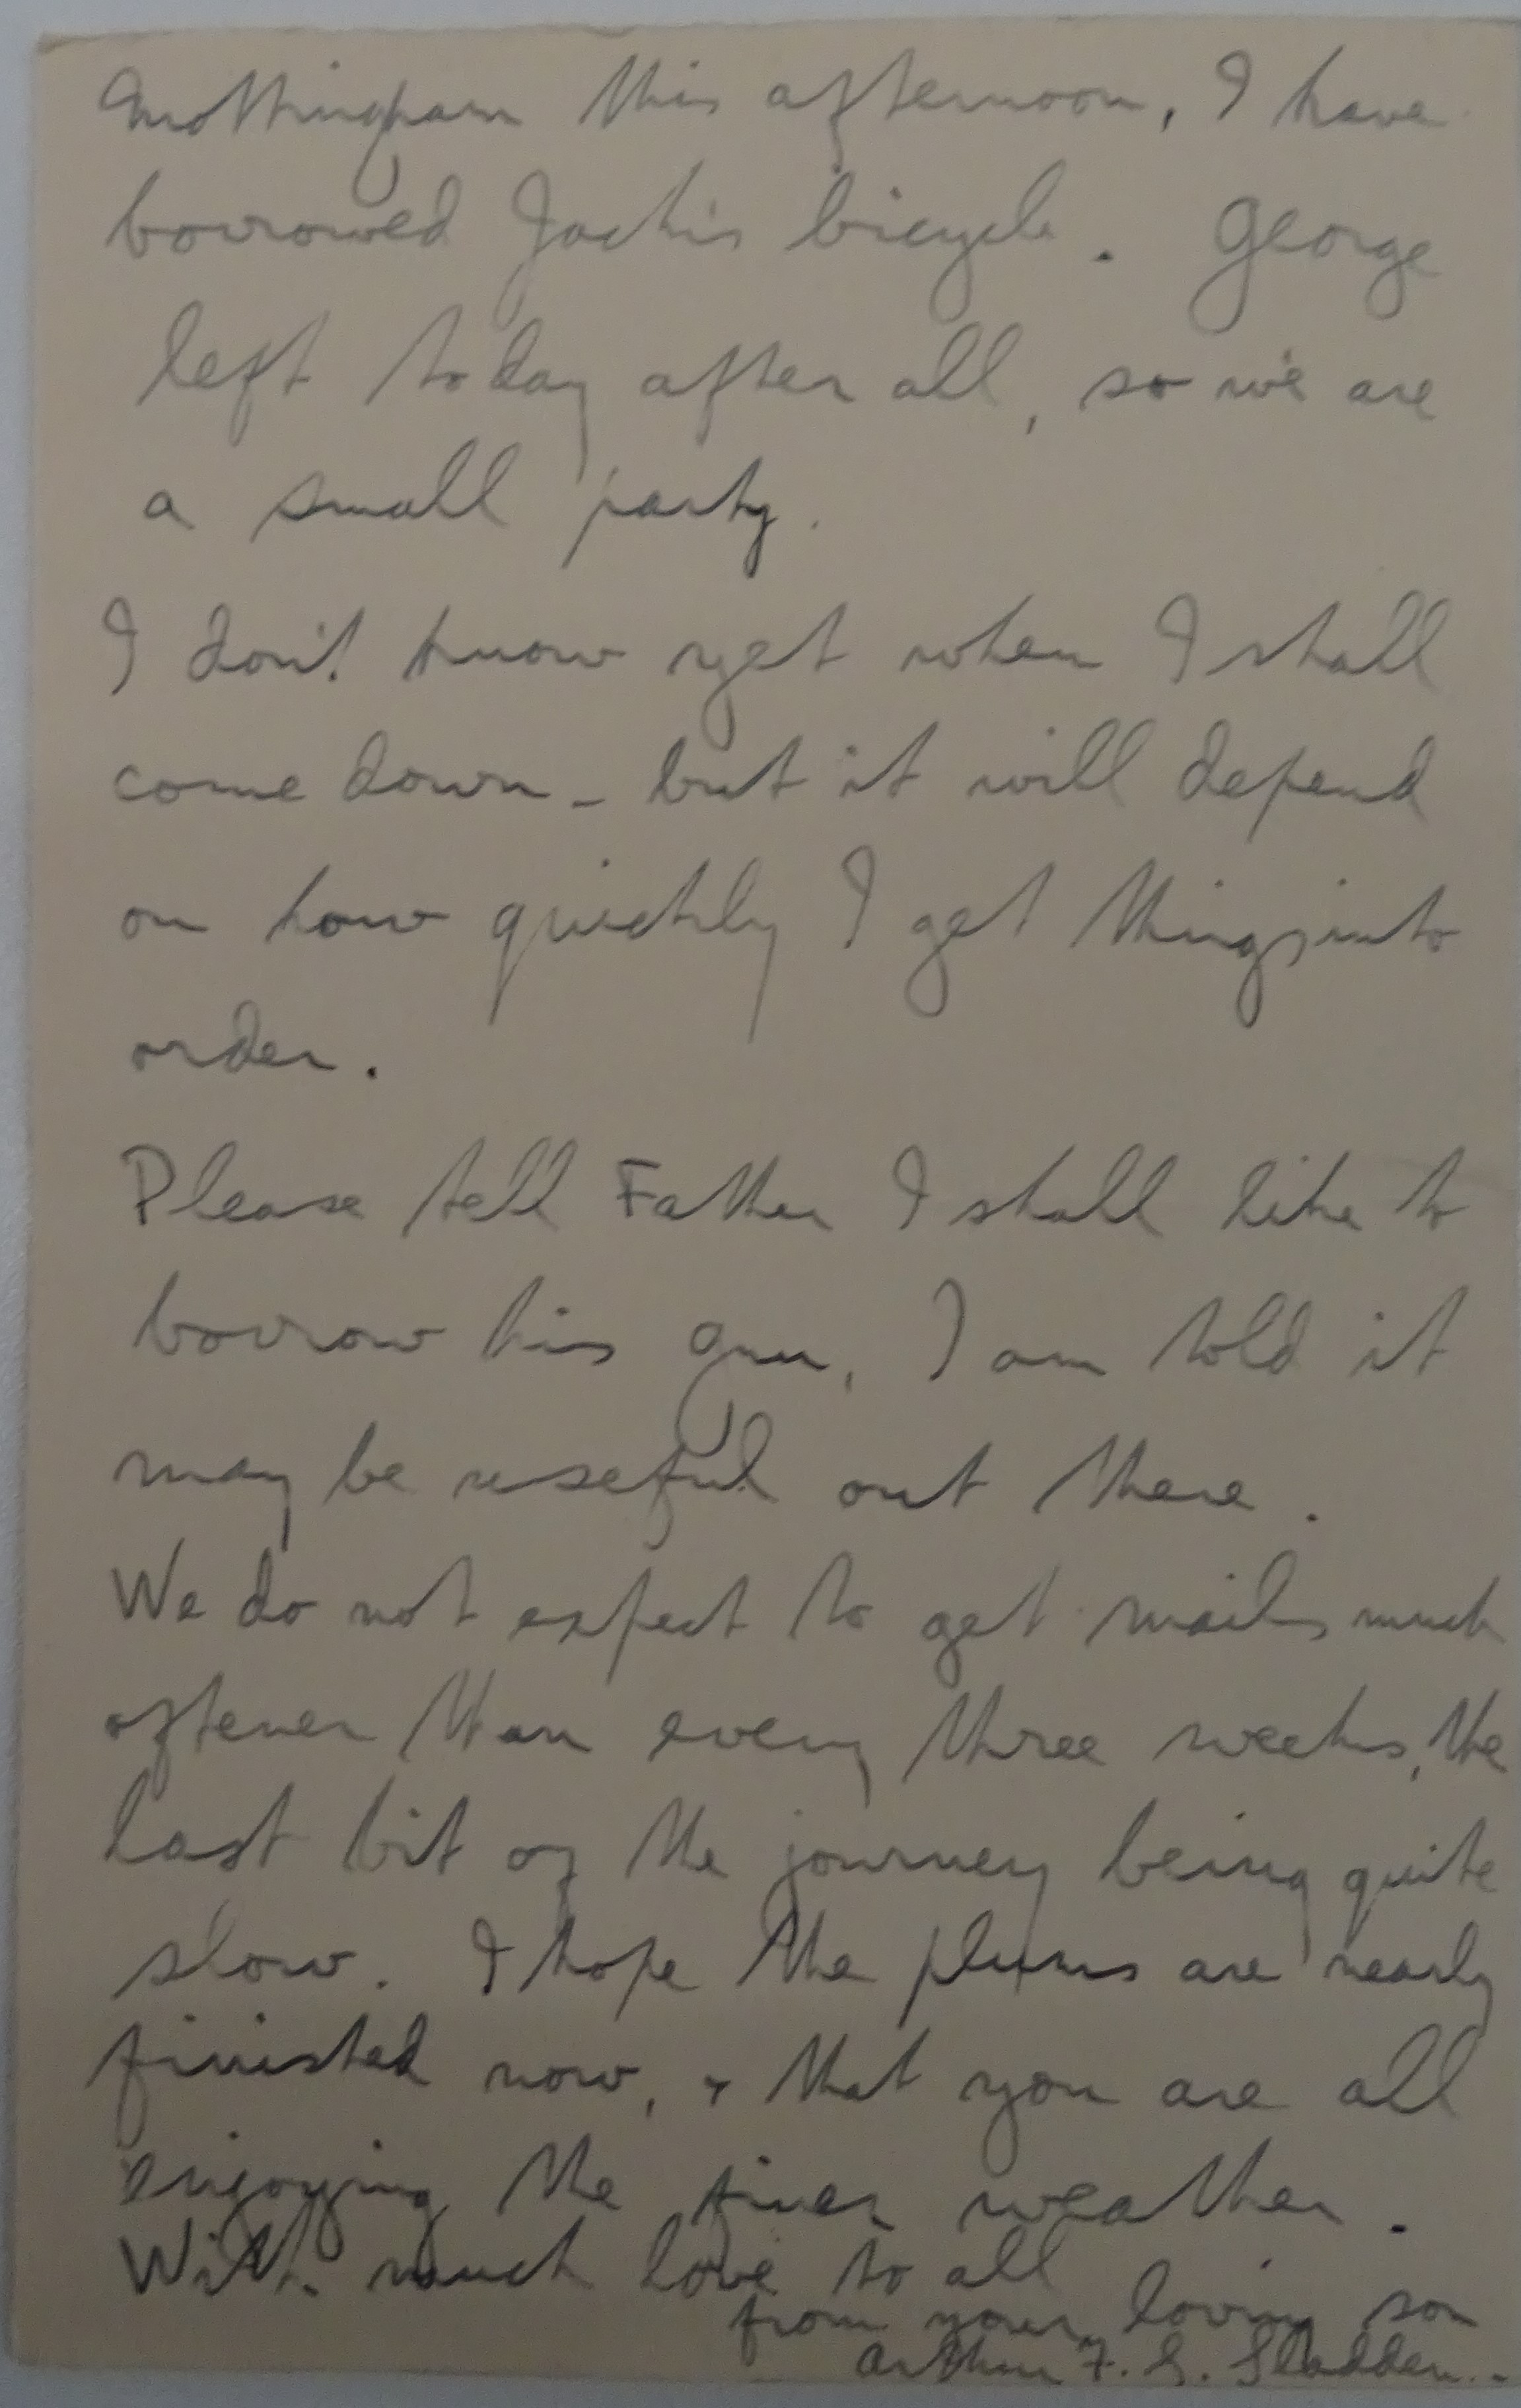 Mottingham this afternoon, I have
borrowed Jack's bicycle. George
left today after all, so we are
a small party.
I don't know yet when I shall
come down - but it will depend
on how quickly I get things into
order.
Please tell Father I shall like to
borrow his gun, I am told it
may be useful out there.
We do not expect to get mails much
oftener than every three weeks, the
last bit of the journey being quite
slow. I hope the plums are nearly
finished now, & that you are all
enjoying the finer weather.
With much love to all
from your loving son
Arthur F. S. Sladden.